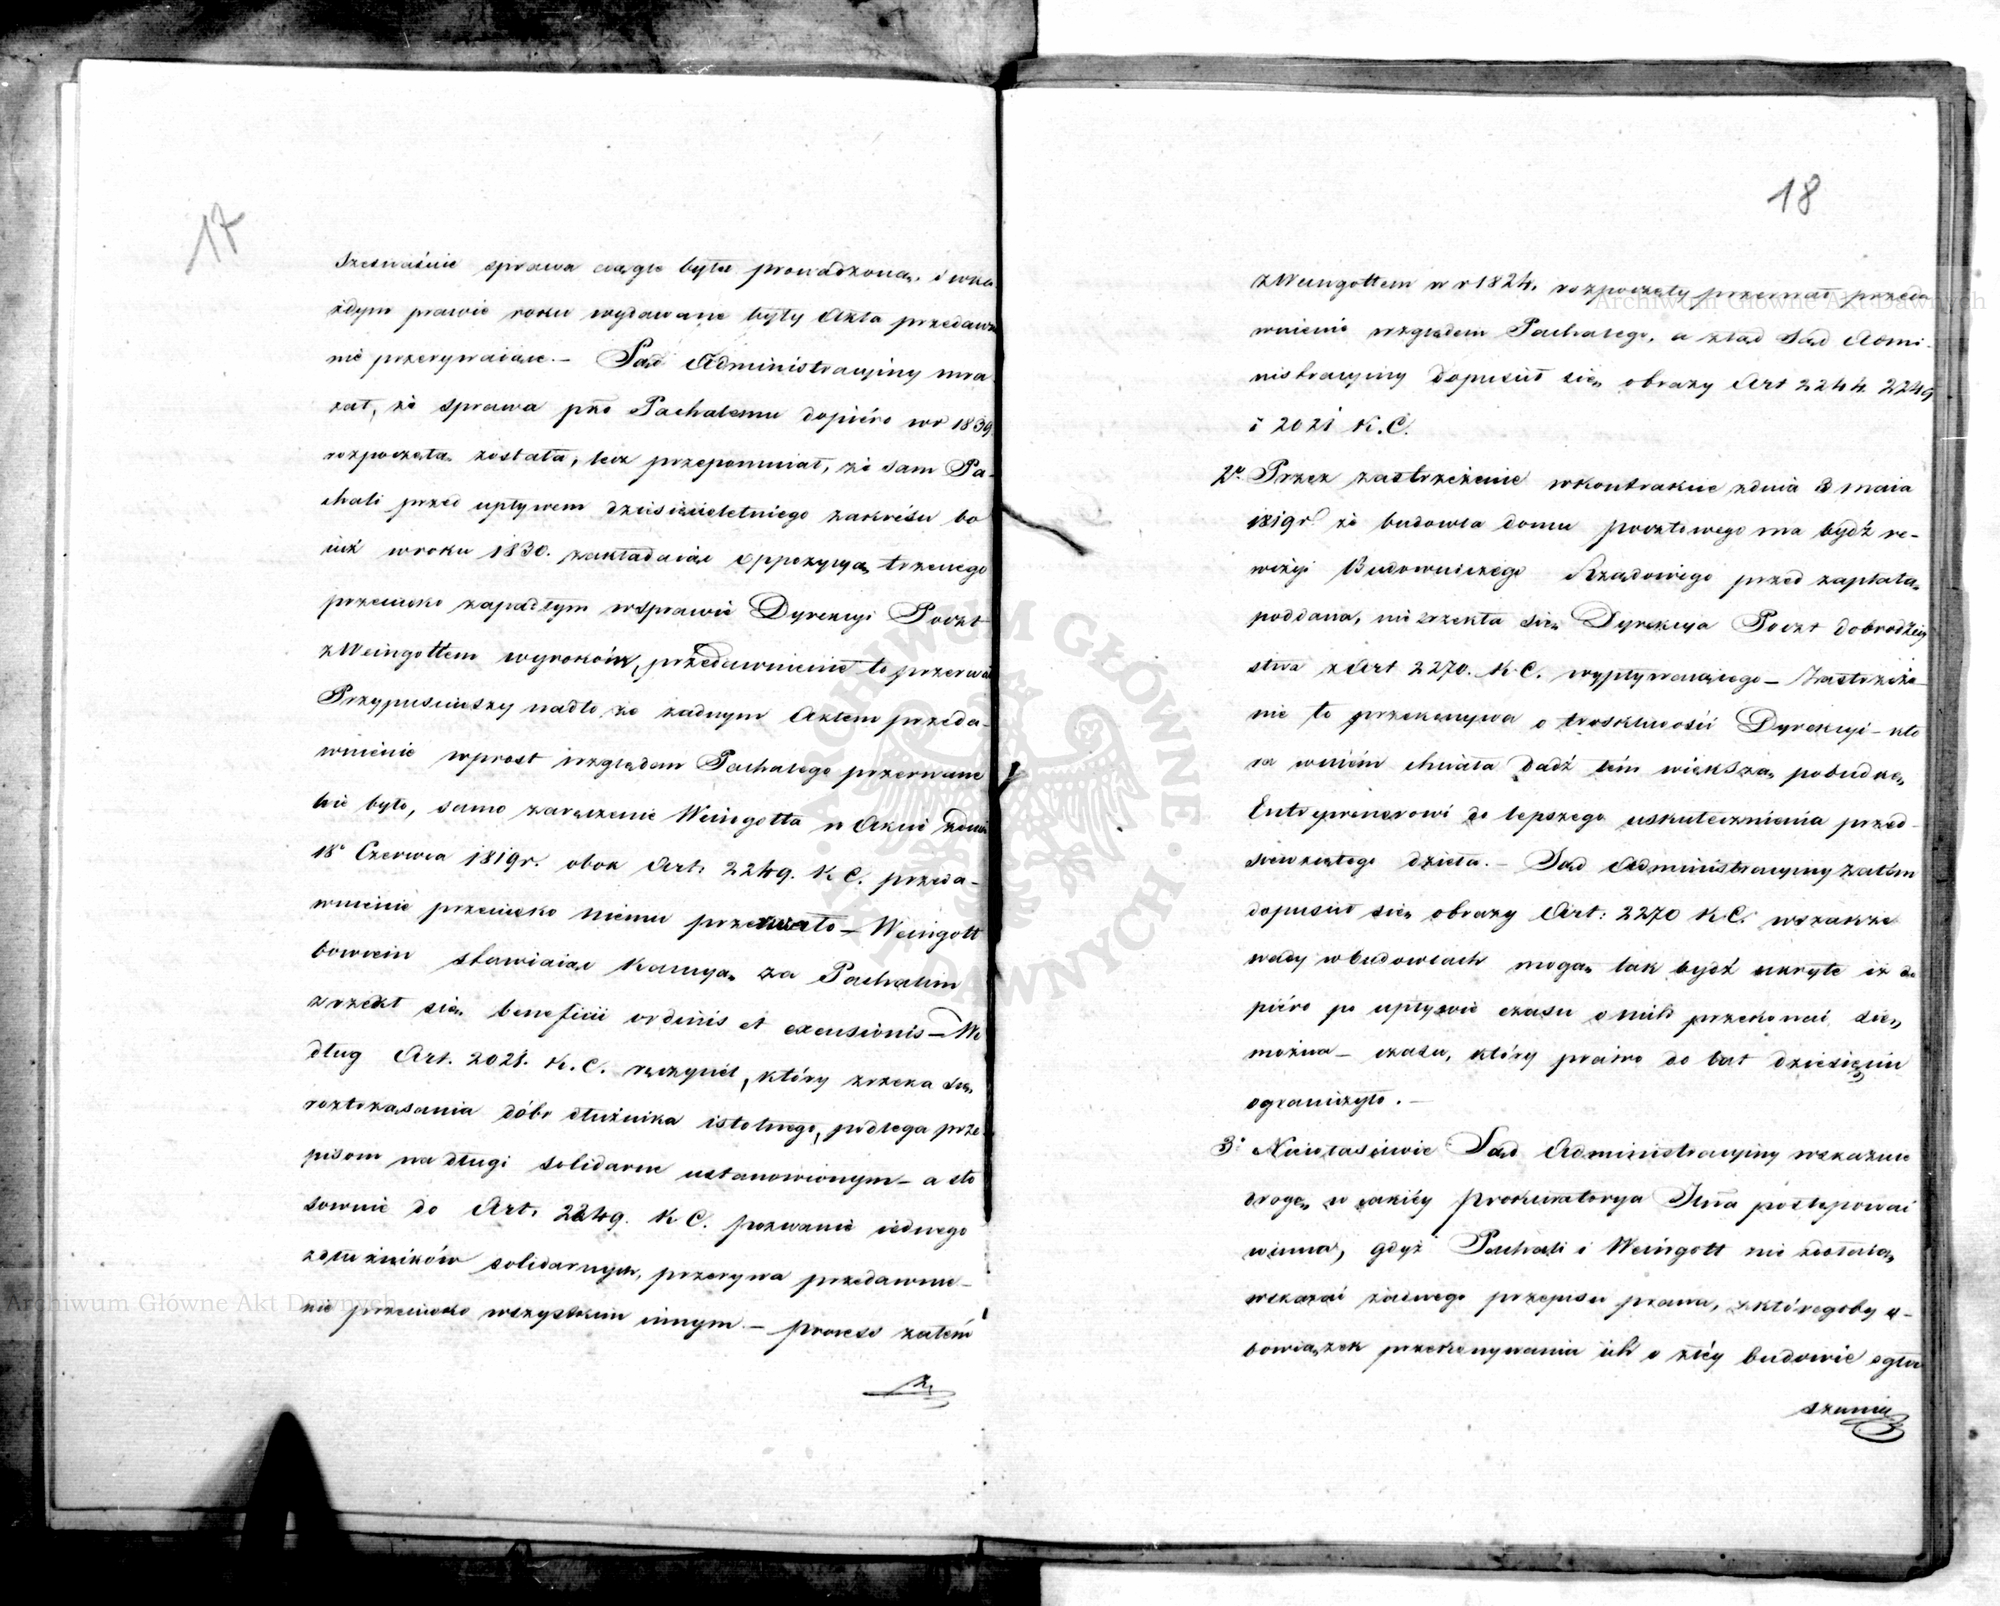 17
szesnaście sprawa ciągle była prowadzoną, i w ka
żdym prawie roku wydawane były Akta przedaw
nie przerywaiące. – Sąd Administracyjny
że sprawa pko Pachalemu dopiéro w r 1839
rozpoczętą została, lecz przepomniał, że sam Pa-
chali przed upływem dziesięcioletniego zakrésu bo
iuż w roku 1830. zakładaiąc oppozycyą trzeciego
przeciwko zapadłym w sprawie Dyrekcyi Poczt
z Weingottem wyroków, przedawnienie to przerwał
Przypuściwszy nadto że żadnym Aktem przeda-
wnienie wprost względem Pachalego przerwane
nie było, samo zaręczenie Weingotta w Akcie z dnia
18° Czerwca 1819 r. obok Art. 2249. K C. przeda-
wnienie przeciwko niemu przerwało – Weingott
bowiem stawiaiąc kaucyą za Pachalim
zrzekł się beneficii ordinis et excusionis – We
dług Art. 2021. K. C. ręczyciel, który zrzeka się
roztrząsania dóbr dłużnika istotnego, podlega prze
pisom na długi solidarne ustanowionym – a sto
sownie do Art. 2249. K C. pozwanie iednego
z dłużników solidarnych, przerywa przedawnie-
nie przeciwko wszystkim innym. – proces zatém
z
18
z Weingottem w r 1824. rozpoczęty przerwał przeda
wnienie względem Pachalego, a ztąd Sąd Admi-
nistracyjny dopuścił się obrazy Art 2244. 2249
i 2021 K.C.
2° Przez zastrzeżenie w kontrakcie z dnia 3 maia
1819 r. że budowla domu pocztowego ma bydź re-
wizyi Budowniczego Rządowego przed zapłatą
poddana, nie zrzekła się Dyrekcya Poczt dobrodziey
stwa z Art 2270. K.C. wypływaiącego – Zastrzeże-
nie to przekonywa o troskliwości Dyrekcyi – któ
ra w niém chciała dadź tém większą pobudkę
Entreprenerowi do lepszego uskutecznienia przed-
sięwziętego dzieła. – Sąd Administracyjny zatém
dopuścił się obrazy Art: 2270 K C. wszakże
wady w budowlach mogą tak bydź ukryte iż do
piéro po upływie czasu o nich przekonać się
można – czasu, który prawo do lat dziesięciu
ograniczyło. –
3° Niewłaściwie Sąd Administracyjny wskazuie
drogę w iakiéy Prokuratorya Jlna postępować
winna, gdyż Pachali i Weingott nie zdołaią
wskazać żadnego przepisu prawa, z któregoby o-
bowiązek przekonywania ich o złéy budowie ogła
szania